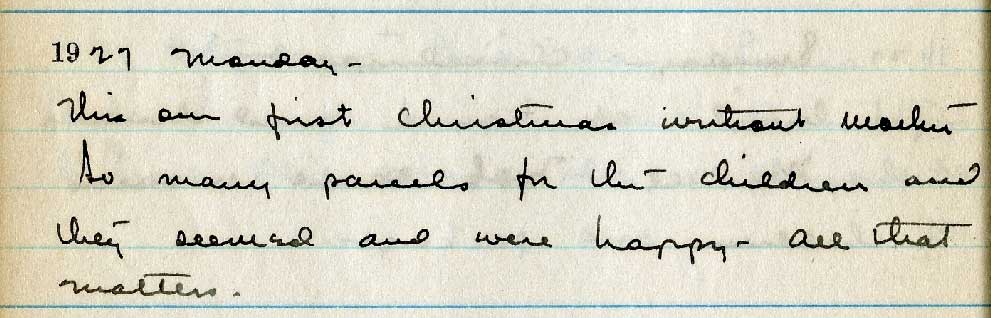 1927 Monday -
This our first Christmas without Mother
So many parcels for the children and
they seemed and were happy - All that
matters.